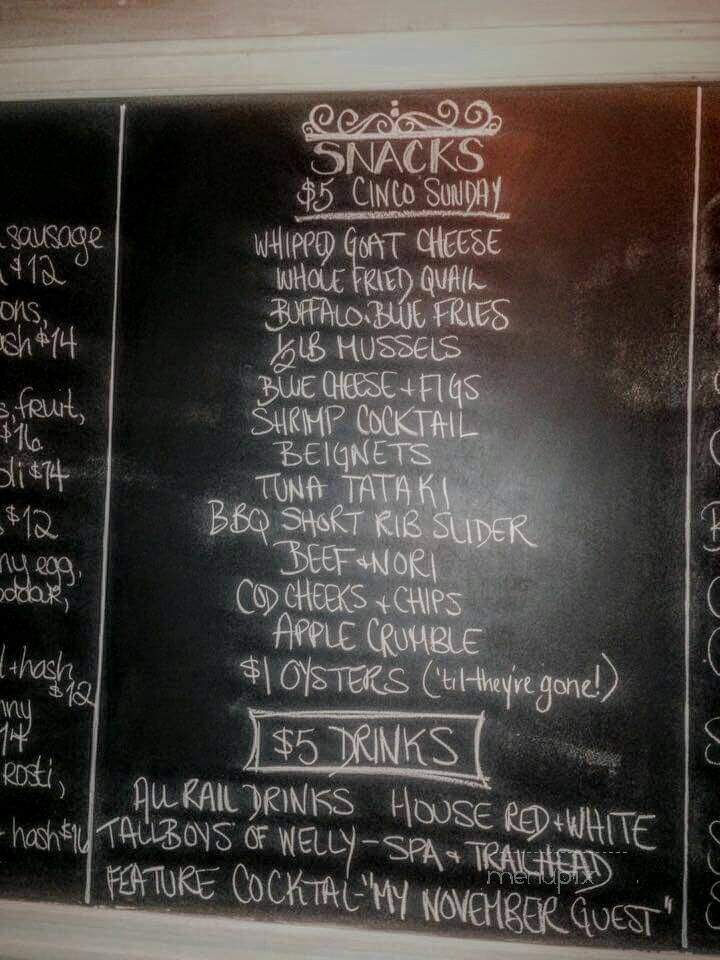 sausage
$12
ons,
ash $14
s, fruit,
$16
oli $14
$12
ny egg,
eddar,
l + hash
$12
nny
14
Rosti,
+ hash $16
SNACKS
$5 CINCO SUNDAY
WHIPPED GOAT CHEESE
WHOLE FRIED QUAIL
BUFFALO BLUE FRIES
½ LB MUSSELS
BLUE CHEESE + FIGS
SHRIMP COCKTAIL
BEIGNETS
TUNA TATAKI
BBQ SHORT RIB SLIDER
BEEF + NORI
COD CHEEKS + CHIPS
APPLE CRUMBLE
$1 OYSTERS ('til they're gone!)
$5 DRINKS
ALL RAIL DRINKS HOUSE RED + WHITE
TALLBOYS OF WELLY - SPA + TRAILHEAD
FEATURE COCKTAL - "MY NOVEMBER GUEST"
menupix